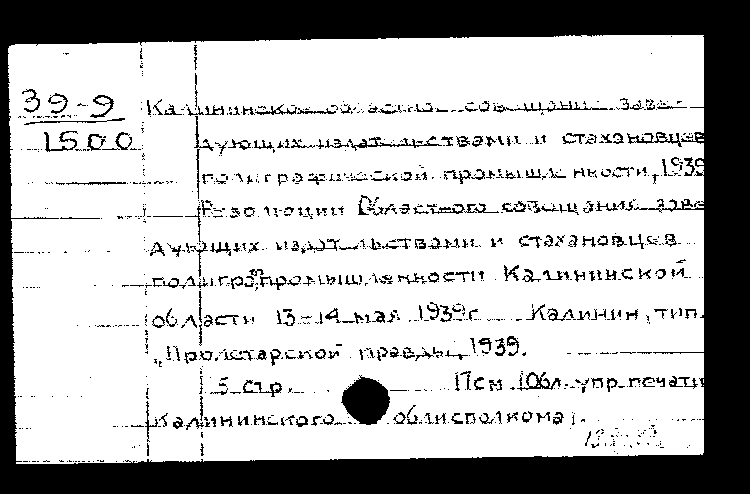 39-9
1500
Калининское областное совещание заве-
дующих издательствами и стахановцев
полиграфической промышленности, 1939
Резолюции Областного совещания заве
дующих издательствами и стахановцев
полиграф. промышленности Калининской
области 13-14 мая 1939г Калинин, тип.
"Пролетарской правды", 1939.
5 стр. Псм (Обл. упр. печати
Калининского облисполкома).